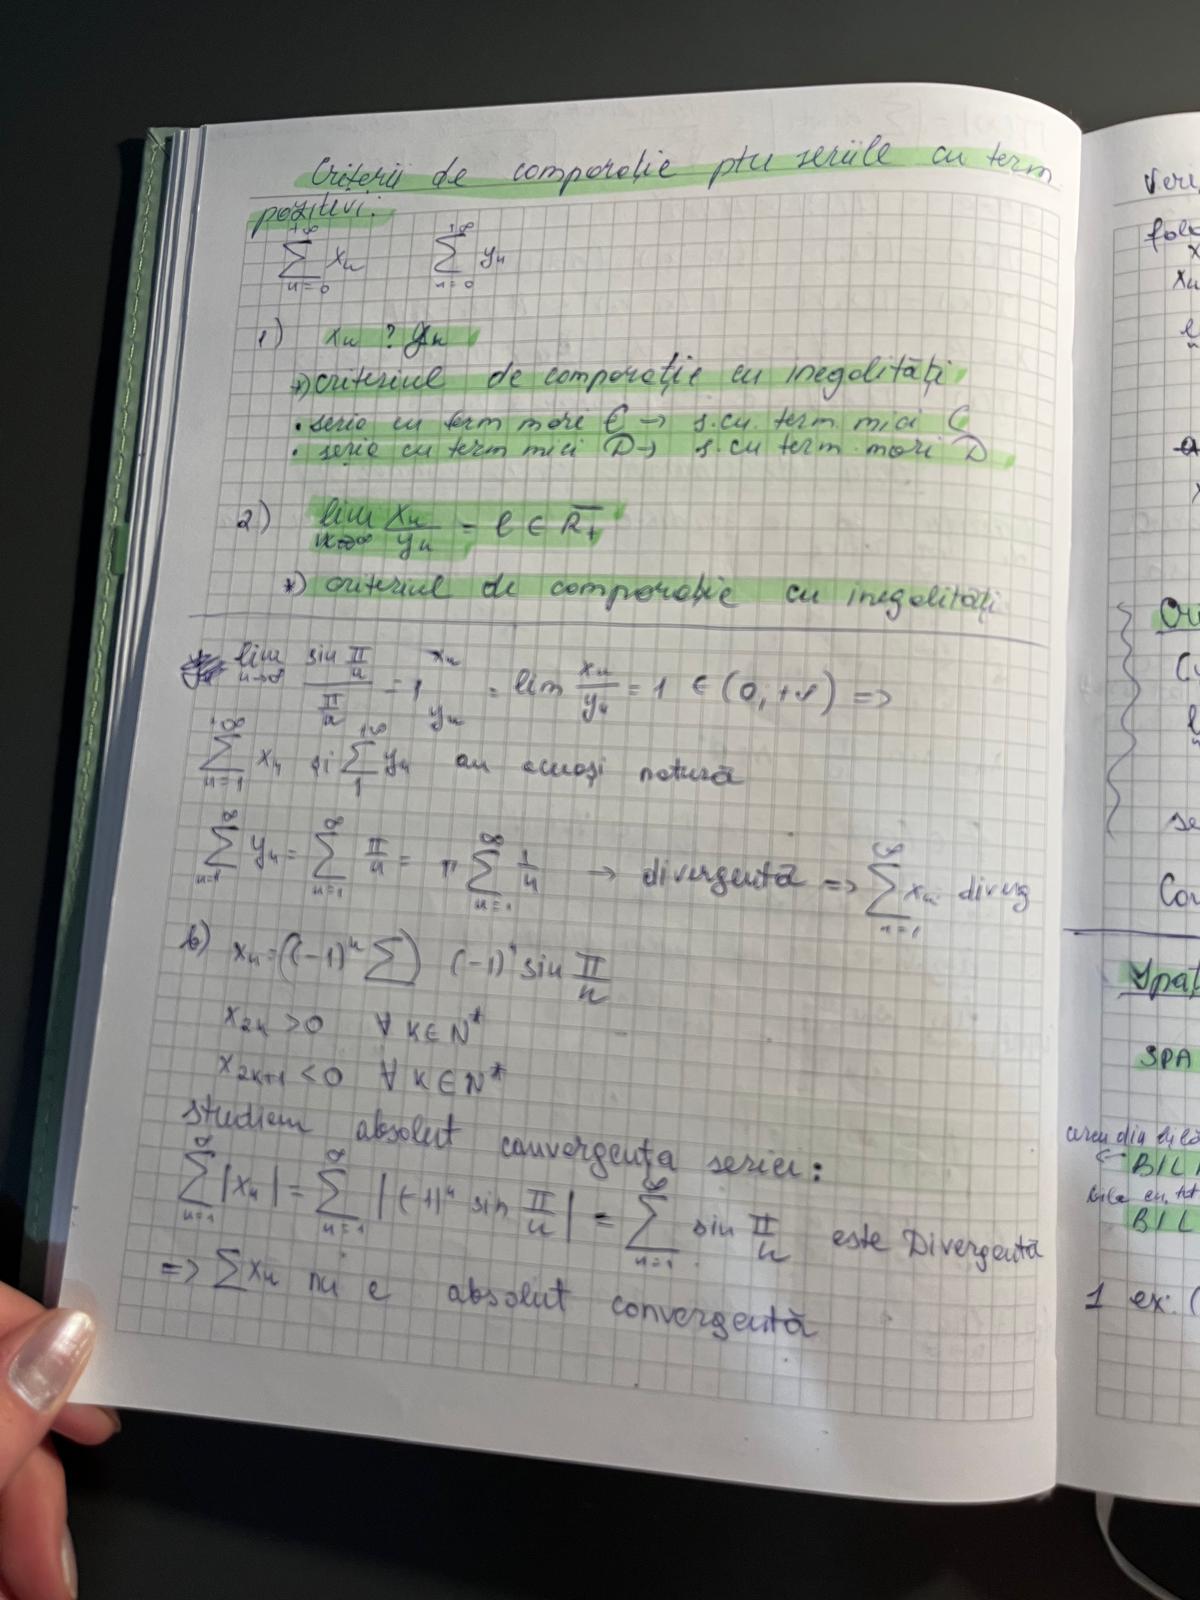 Criterii de comparație ptu seriile cu term
pozitivi:
+∞ ∑ n=0 xn   +∞ ∑ n=0 yn
1) xn ? yn
*) criteriul de comparație cu inegalități
• serie cu term mari C → s.cu term mici C
• serie cu term mici D → s.cu term mari D
2) lim n→∞ xn/yn = l ∈ R̅+
*) criteriul de comparație cu inegalități
lim n→∞ (sin π/n)/(π/n) = 1   xn yn = lim xn/yn = 1 ∈ (0,+∞) =>
+∞ ∑ n=1 xn și +∞ ∑ 1 yn au aceași natură
∞ ∑ n=1 yn = ∞ ∑ n=1 π/n = π ∞ ∑ n=1 1/n → divergentă => ∞ ∑ n=1 xn diverg
b) xn = ((-1)^n ∑) (-1)^n sin π/n
x2k > 0 ∀ k ∈ N*
x2k+1 < 0 ∀ k ∈ N*
studiem absolut convergența seriei:
∞ ∑ n=1 |xn| = ∞ ∑ n=1 |(-1)^n sin π/n| = ∞ ∑ n=1 sin π/n este Divergentă
=> ∑xn nu e absolut convergentă
Veri
xn
SPA
BIL
BIL
1 ex: (